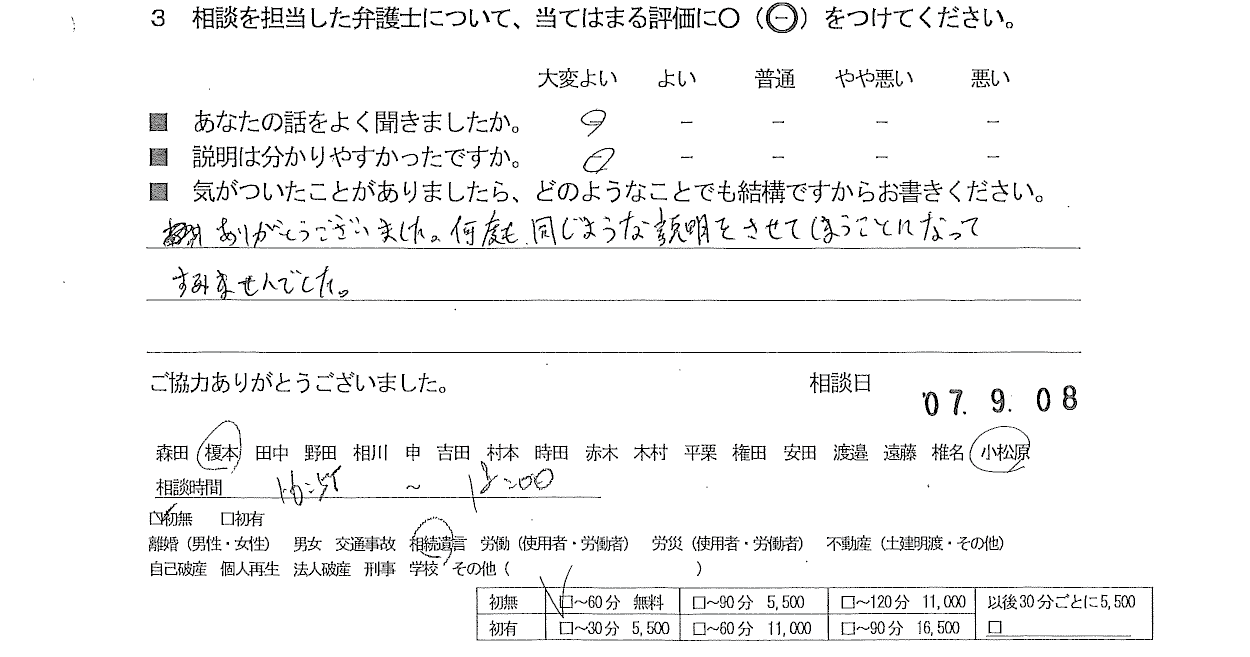 3 相談を担当した弁護士について、当てはまる評価に〇（㊀）をつけてください。
大変よい よい 普通 やや悪い 悪い
■ あなたの話をよく聞きましたか。 － － － － －
■ 説明は分かりやすかったですか。 － － － － －
■ 気がついたことがありましたら、どのようなことでも結構ですからお書きください。
ありがとうございました。何度も同じような説明をさせてしまうことになって
すみませんでした。
ご協力ありがとうございました。 相談日 '07. 9. 08
森田 榎本 田中 野田 相川 申 吉田 村本 時田 赤木 木村 平栗 権田 安田 渡邉 遠藤 椎名 小松原
相談時間 16:55 ～ 18:00
☑初無 □初有
離婚（男性・女性） 男女 交通事故 相続遺言 労働（使用者・労働者） 労災（使用者・労働者） 不動産（土建明渡・その他）
自己破産 個人再生 法人破産 刑事 学校 その他（ ）
初無 ☑～60分 無料 □～90分 5,500 □～120分 11,000 以後30分ごとに5,500
初有 □～30分 5,500 □～60分 11,000 □～90分 16,500 □